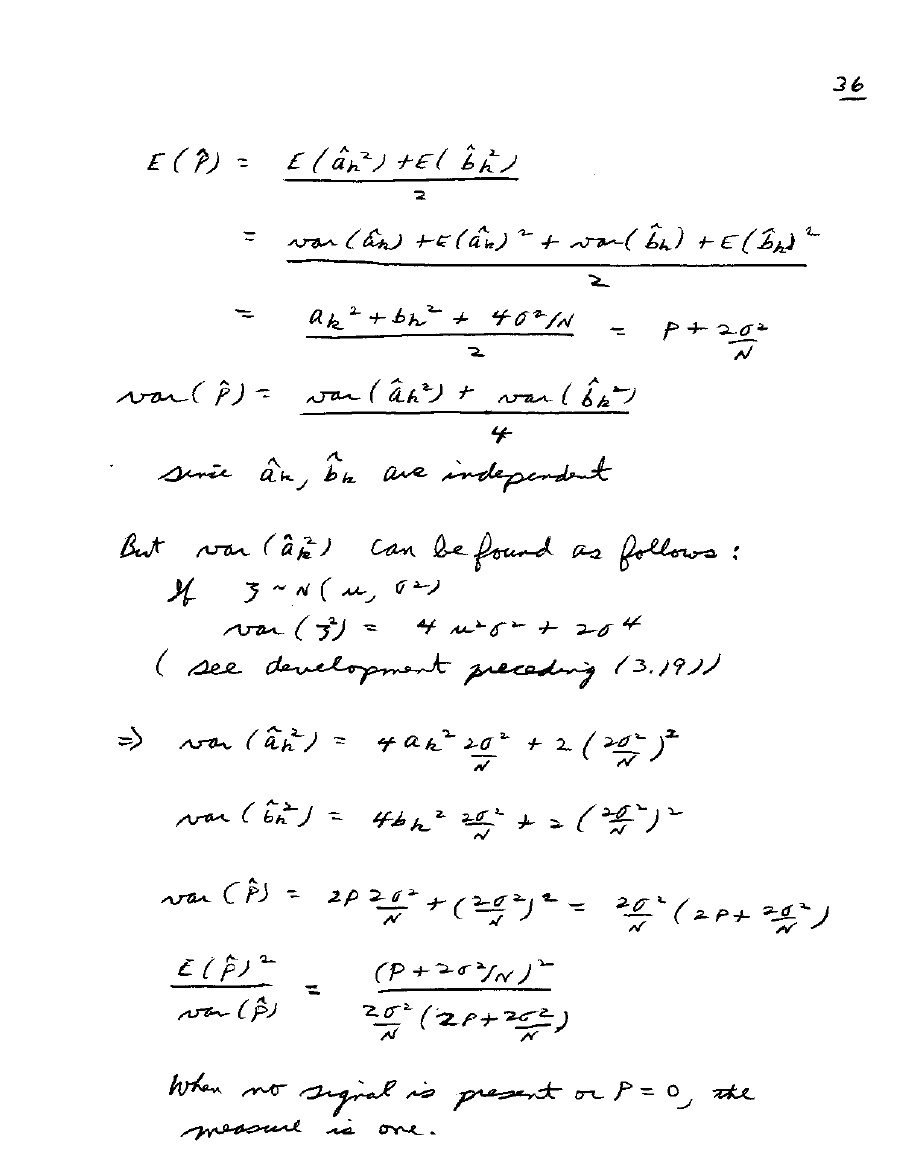 36
E(P̂) = (E(âₖ²) + E(b̂ₖ²)) / 2
= (var(âₖ) + E(âₖ)² + var(b̂ₖ) + E(b̂ₖ)²) / 2
= (aₖ² + bₖ² + 4σ²/N) / 2 = P + 2σ²/N
var(P̂) = (var(âₖ²) + var(b̂ₖ²)) / 4
since âₖ, b̂ₖ are independent
But var(âₖ²) can be found as follows:
If ξ ~ N(μ, σ²)
var(ξ²) = 4μ²σ² + 2σ⁴
(see development preceding (3.19))
⇒ var(âₖ²) = 4aₖ² 2σ²/N + 2(2σ²/N)²
var(b̂ₖ²) = 4bₖ² 2σ²/N + 2(2σ²/N)²
var(P̂) = 2P 2σ²/N + (2σ²/N)² = 2σ²/N (2P + 2σ²/N)
E(P̂)² / var(P̂) = (P + 2σ²/N)² / (2σ²/N (2P + 2σ²/N))
When no signal is present or P = 0, the
measure is one.